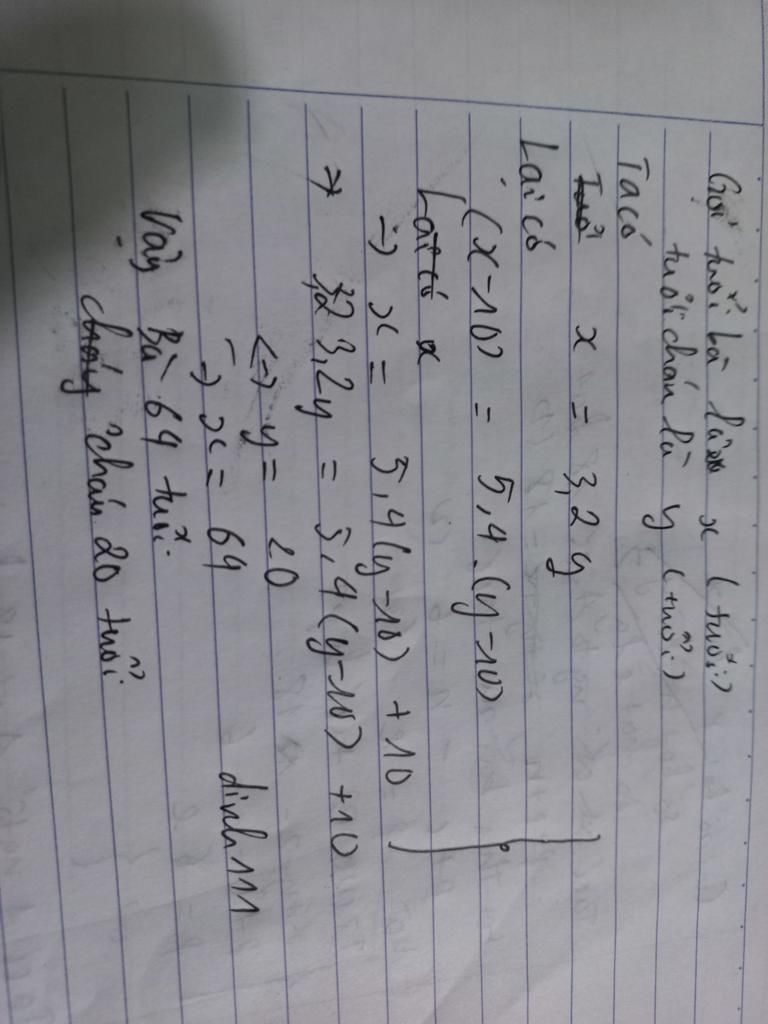 Gọi tuổi bà là x (tuổi)
tuổi cháu là y (tuổi)
Ta có
Tuổi x = 3,2 y
Lại có
(x-10) = 5,4 .(y-10)
Lại có x
=> x = 5,4(y-10) + 10
=> 3,2 3,2y = 5,4(y-10) + 10
<=> y = 20
=> x = 64
dinh111
Vậy Bà 64 tuổi
cháu 20 tuổi